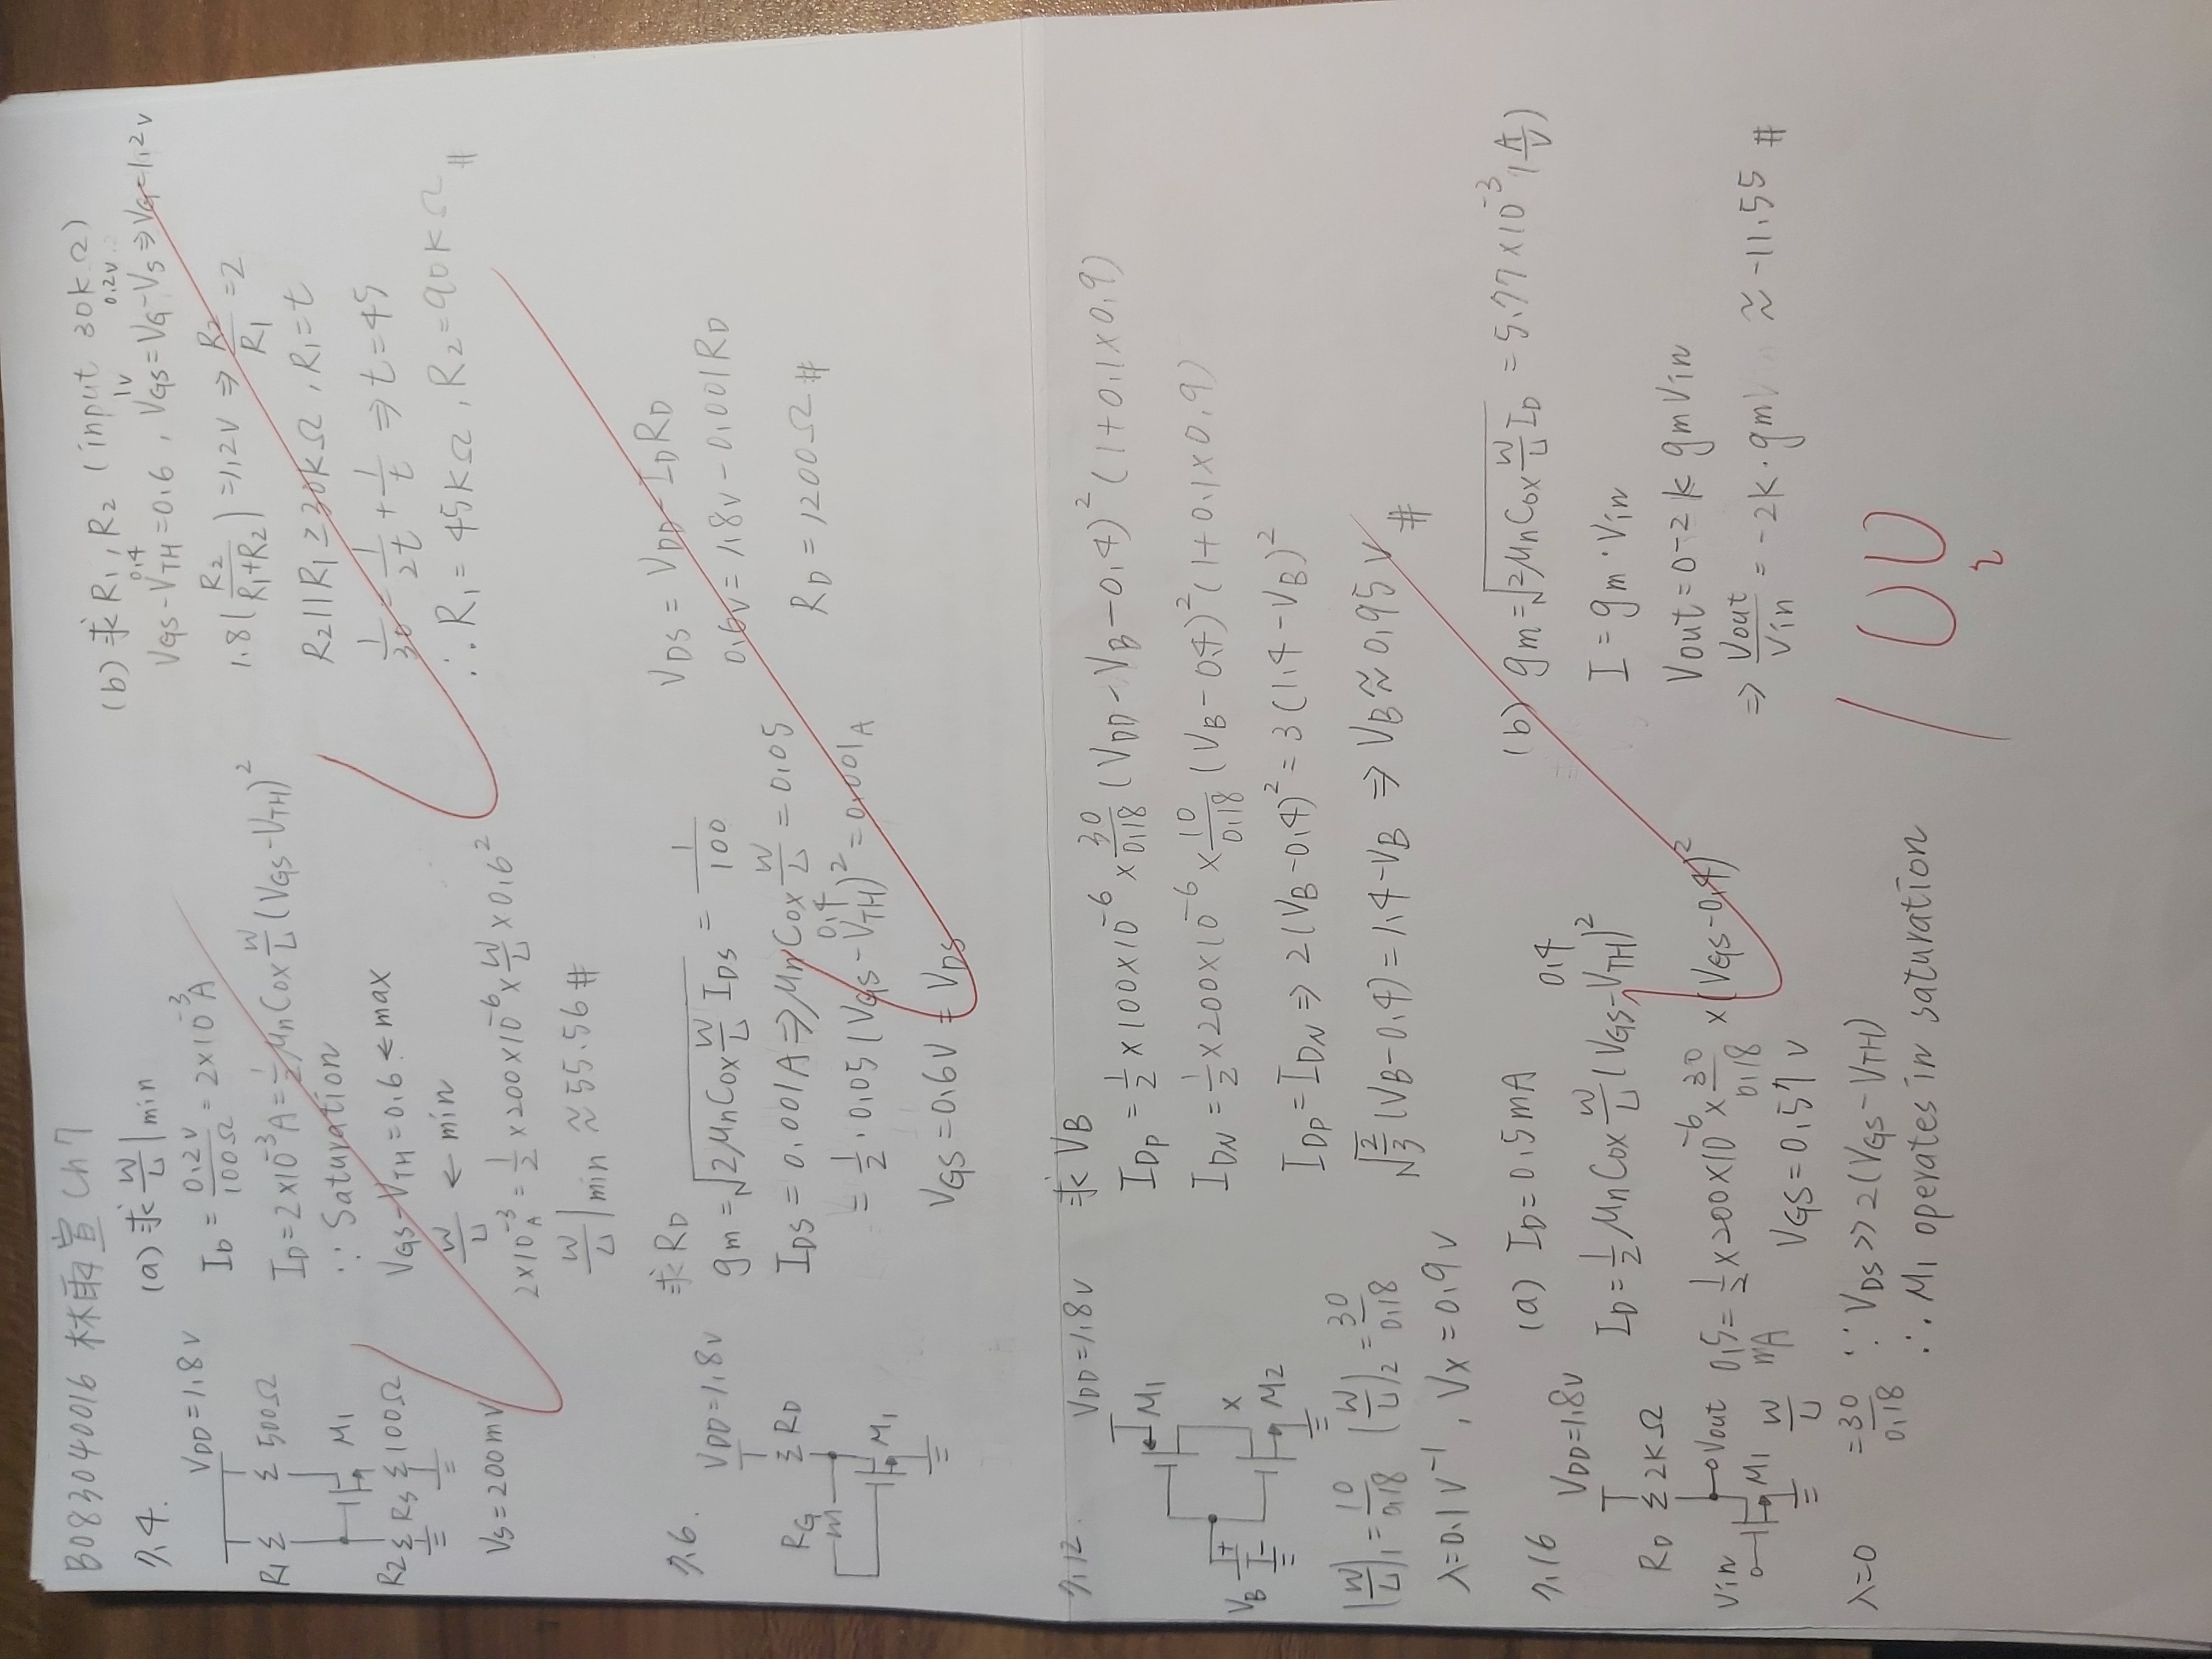 B083040016 林雨宣 Ch7
7.4.
VDD=1.8V
R1 500Ω
M1
R2 RS 100Ω
VS=200mV
(a) 求 W/L|min
ID = 0.2V/100Ω = 2×10^-3 A
ID=2×10^-3 A=1/2 μnCox W/L (VGS-VTH)^2
∵ Saturation
VGS-VTH=0.6 ← max
W/L ← min
2×10^-3 A = 1/2 ×200×10^-6 × W/L ×0.6^2
W/L|min ≈55.56 #
(b) 求 R1, R2 (input 30kΩ)
0.4 1V 0.2V
VGS-VTH=0.6, VGS=VG-VS⇒VG=1.2V
1.8(R2/(R1+R2))=1.2V ⇒ R2/R1=2
R2||R1≥30kΩ, R1=t
1/30=1/2t+1/t ⇒ t=45
∴R1=45kΩ, R2=90kΩ #
7.6.
VDD=1.8V
RG RD
M1
求RD
gm=√(2μnCox W/L IDS) = 1/100
IDS=0.001A⇒μnCox W/L=0.05
0.4
=1/2·0.05(VGS-VTH)^2=0.001A
VGS=0.6V=VDS
VDS=VDD-IDRD
0.6V=1.8V-0.001RD
RD=1200Ω #
7.12.
VDD=1.8V
M1
VB + - X
M2
(W/L)1=10/0.18 (W/L)2=30/0.18
λ=0.1V^-1, VX=0.9V
求 VB
IDP=1/2×100×10^-6×30/0.18(VDD-VB-0.4)^2(1+0.1×0.9)
IDN=1/2×200×10^-6×10/0.18(VB-0.4)^2(1+0.1×0.9)
IDP=IDN⇒2(VB-0.4)^2=3(1.4-VB)^2
√(2/3)(VB-0.4)=1.4-VB ⇒ VB≈0.95V #
7.16
VDD=1.8V
RD 2KΩ
Vout
Vin M1
λ=0 W/L=30/0.18
(a) ID=0.5mA
0.4
ID=1/2 μnCox W/L (VGS-VTH)^2
0.5mA=1/2×200×10^-6×30/0.18×(VGS-0.4)^2
VGS=0.57V
∵ VDS>>2(VGS-VTH)
∴ M1 operates in saturation
(b) gm=√(2μnCox W/L ID) = 5.77×10^-3 (A/V)
I=gm·Vin
Vout=0-2k gmVin
⇒ Vout/Vin=-2k·gm ≈-11.55 #
100